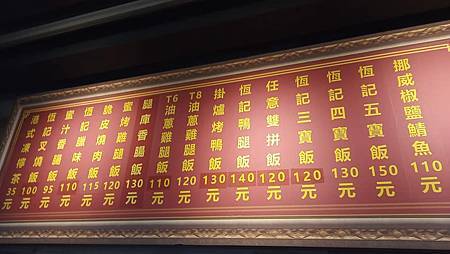 挪威椒鹽鯖魚110元
恆記五寶飯150元
恆記四寶飯130元
恆記三寶飯120元
任意雙拼飯120元
恆記鴨腿飯140元
掛爐烤鴨飯130元
T8油蔥雞腿飯120元
T6油蔥雞腿飯110元
腿庫香腸飯130元
蜜烤雞腿飯120元
脆皮燒肉飯115元
恆記臘味飯110元
蜜汁香腸飯95元
恆記叉燒飯100元
港式凍檸茶35元